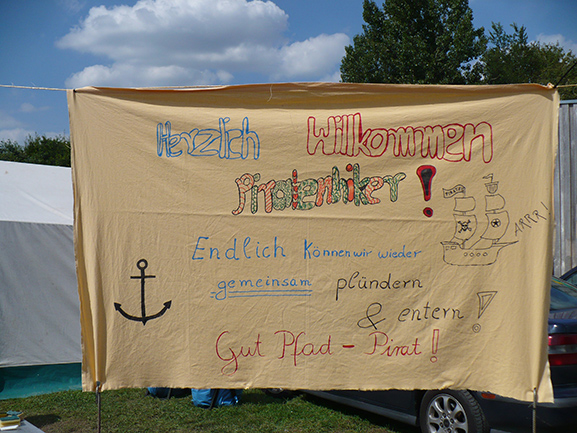 Herzlich Willkommen
Piratenhiker!
ARRR!
Endlich können wir wieder
gemeinsam plündern
& entern!
Gut Pfad - Pirat!